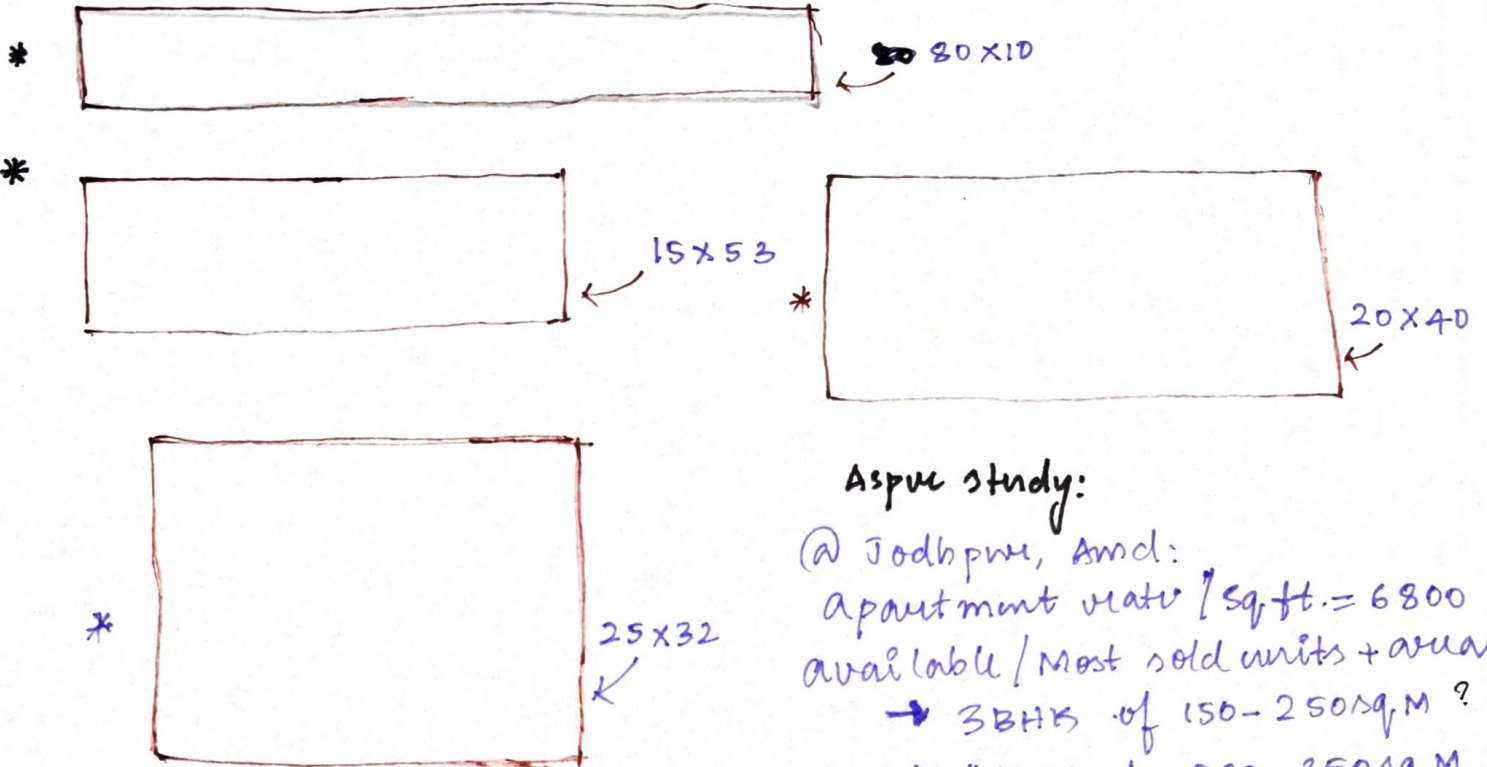 80 80X10
15X53
20X40
25X32
Aspur study:
@ Jodhpur, Amd:
apartment rate / sq.ft. = 6800
available / Most sold units + area
→ 3BHK of 150-250sq.M ?
350sq.M